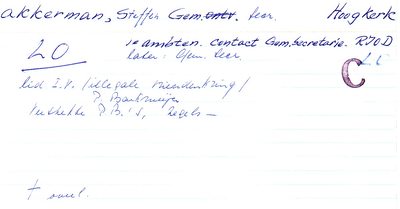 akkerman, Steffen Gem.ontv. secr. Hoogkerk
LO 1e ambten. contact Gem.secretarie. RIOD
later: Gem. secr. LO
C
lid I.V. (illegale vriendenkring)
P. Boekmeijer
Verstrekte P.B.'s, zegels —
† overl.